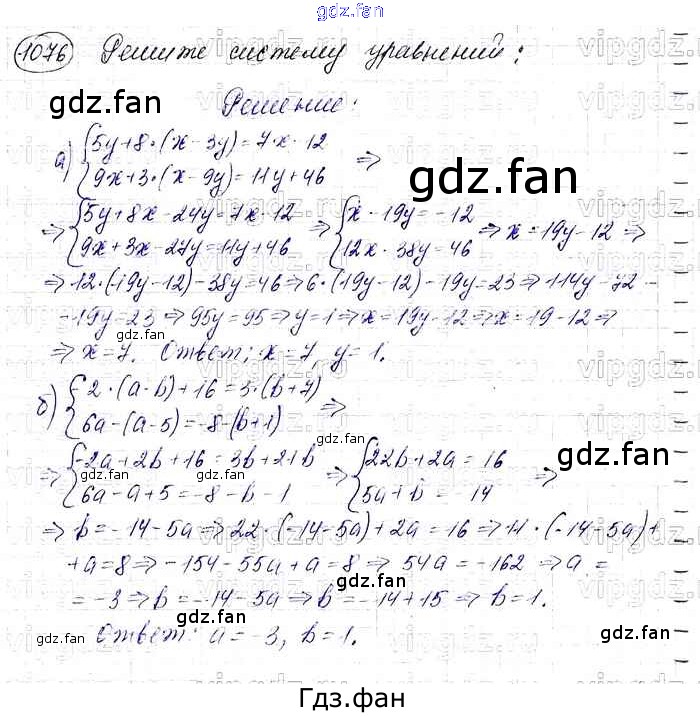 gdz.fan
1076 Решите систему уравнений:
gdz.fan
Решение:
а) {5y+8·(x-3y)=7x-12
{9x+3·(x-9y)=11y+46 ⇒
gdz.fan
⇒ {5y+8x-24y=7x-12 ⇒ {x-19y=-12 ⇒ x=19y-12 ⇒
{9x+3x-27y=11y+46 {12x-38y=46
⇒ 12·(19y-12)-38y=46 ⇒ 6·(19y-12)-19y=23 ⇒ 114y-72-
-19y=23 ⇒ 95y=95 ⇒ y=1 ⇒ x=19y-12 ⇒ x=19-12 ⇒
gdz.fan gdz.fan
⇒ x=7. Ответ: x=7, y=1.
б) {-2·(a-b)+16=3·(b+7)
{6a-(a-5)=-8-(b+1) ⇒
gdz.fan
⇒ {-2a+2b+16=3b+21b ⇒ {22b+2a=16
{6a-a+5=-8-b-1 {5a+b=-14
gdz.fan gdz.fan
⇒ b=-14-5a ⇒ 22·(-14-5a)+2a=16 ⇒ 11·(-14-5a)+
+a=8 ⇒ -154-55a+a=8 ⇒ 54a=-162 ⇒ a=
gdz.fan
=-3 ⇒ b=-14-5a ⇒ b=-14+15 ⇒ b=1.
gdz.fan gdz.fan
Ответ: a=-3, b=1.
Гдз.фан